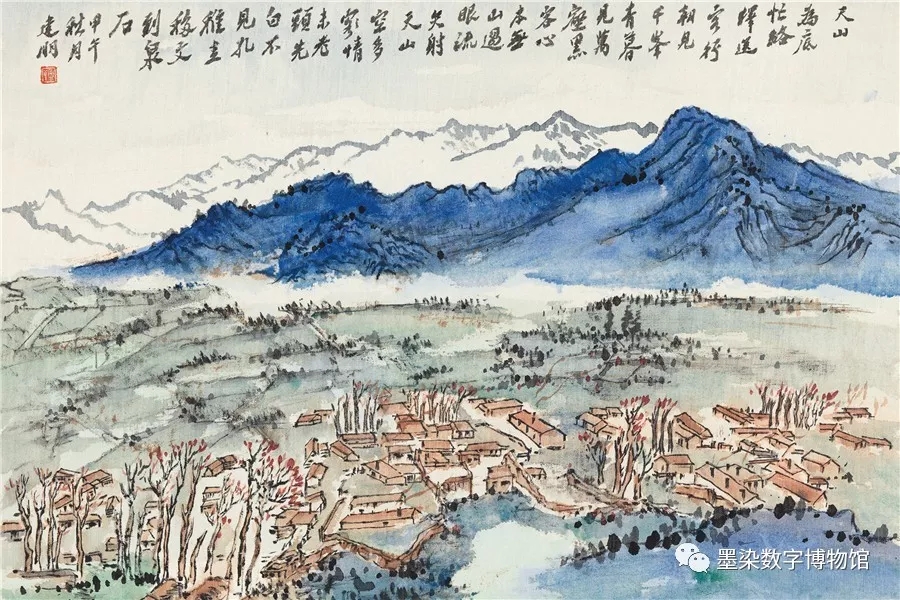 天山
為底
忙絡
繹送
客行
朝見
千峯
青暮
見萬
壑黑
客心
本無
山過
眼流
矢射
天山
空多
客情
未老
頭先
白不
見孔
稚圭
移文
到泉
石
甲午
秋月
建明
墨染数字博物馆